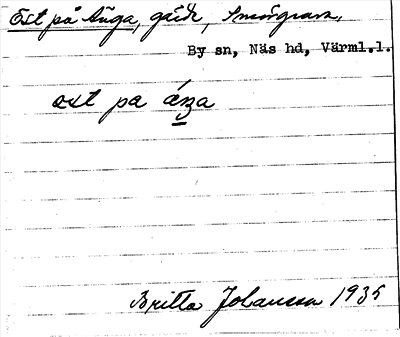 Öst på Änga, gård, Smörgrava.
By sn, Näs hd, Värml.l.
öst pa áŋa
Britta Johansson 1935